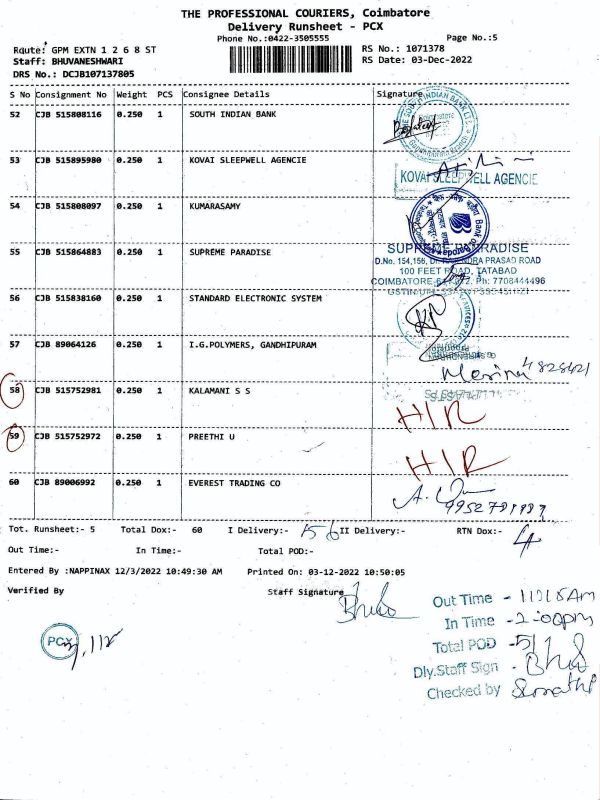 THE PROFESSIONAL COURIERS, Coimbatore
Delivery Runsheet - PCX
Phone No.:0422-3505555
Page No.:5
Route: GPM EXTN 1 2 6 8 ST
RS No.: 1071378
Staff: BHUVANESHWARI
RS Date: 03-Dec-2022
DRS No.: DCJB107137805
S No Consignment No Weight PCS Consignee Details Signature
52 CJB 515808116 0.250 1 SOUTH INDIAN BANK
53 CJB 515895980 0.250 1 KOVAI SLEEPWELL AGENCIE
KOVAI SLEEPWELL AGENCIE
54 CJB 515808097 0.250 1 KUMARASAMY
55 CJB 515864883 0.250 1 SUPREME PARADISE
SUPREME PARADISE
D.No. 154,156, Dr. RAJENDRA PRASAD ROAD
100 FEET ROAD, TATABAD
COIMBATORE Ph: 7708444496
56 CJB 515838160 0.250 1 STANDARD ELECTRONIC SYSTEM
57 CJB 89064126 0.250 1 I.G.POLYMERS, GANDHIPURAM
58 CJB 515752981 0.250 1 KALAMANI S S
HIR
59 CJB 515752972 0.250 1 PREETHI U
HIR
60 CJB 89006992 0.250 1 EVEREST TRADING CO
Tot. Runsheet:- 5 Total Dox:- 60 I Delivery:- 56 II Delivery:- RTN Dox:- 4
Out Time:- In Time:- Total POD:-
Entered By :NAPPINAX 12/3/2022 10:49:30 AM Printed On: 03-12-2022 10:50:05
Verified By Staff Signature
Out Time - 11:15 Am
In Time - 2:00pm
Total POD - 5
Dly.Staff Sign
Checked by
PCX